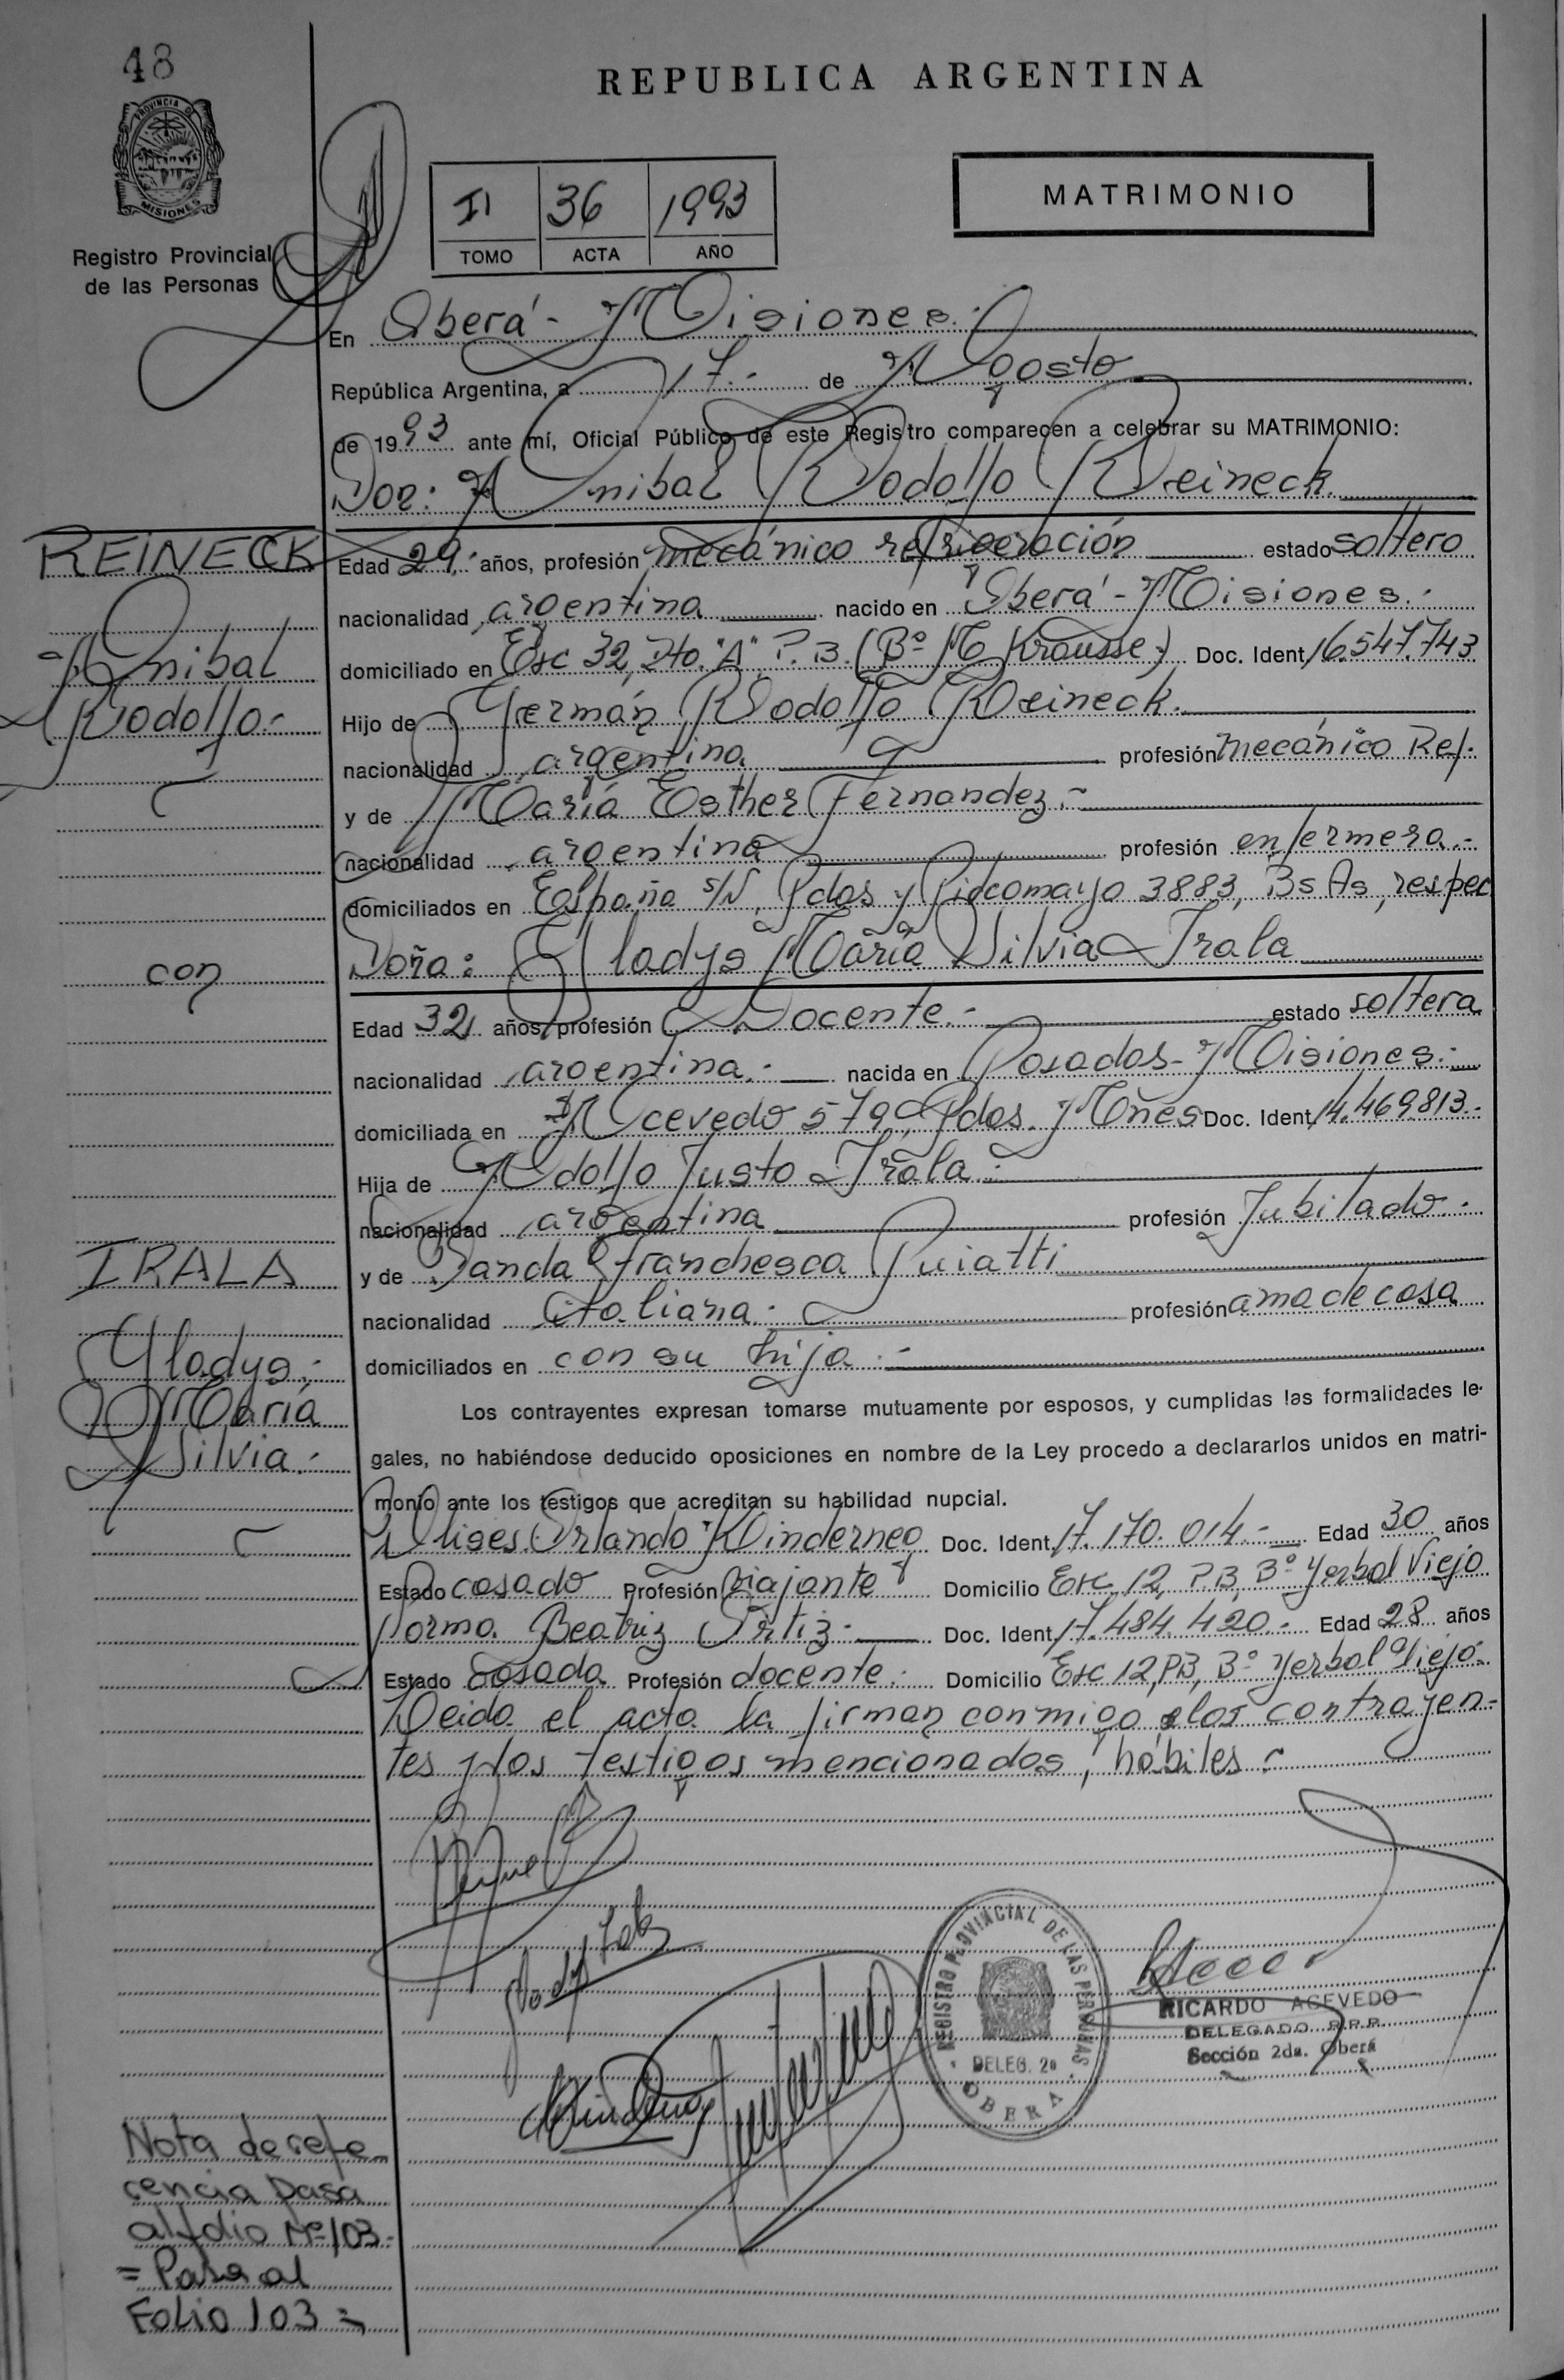 48
REPUBLICA ARGENTINA
PROVINCIA DE MISIONES
Registro Provincial
de las Personas
II 36 1993
TOMO ACTA AÑO
MATRIMONIO
En Oberá - Misiones.-
República Argentina, a 17.- de Agosto
de 1993 ante mí, Oficial Público de este Registro comparecen a celebrar su MATRIMONIO:
Don: Anibal Rodolfo Reineck
REINECK
Anibal
Rodolfo.-
Edad 29.- años, profesión mecánico refrigeración estado soltero
nacionalidad argentina nacido en Oberá - Misiones.-
domiciliado en Esc 32, Dto. "A" P.B. (Bº M Krausse) Doc. Ident. 16.547.743
Hijo de Germán Rodolfo Reineck.
nacionalidad argentina profesión mecánico Ref.
y de María Esther Fernandez.-
nacionalidad argentina profesión enfermera.-
domiciliados en España s/N, Pdas y Pilcomayo 3883, Bs As, respec
con
Doña: Gladys María Silvia Irala
Edad 32 años, profesión Docente.- estado soltera
nacionalidad argentina.- nacida en Posadas - Misiones.-
domiciliada en Acevedo 579, Pdas. Mñes Doc. Ident. 14.469813.-
Hija de Adolfo Justo Irala.-
nacionalidad argentina profesión Jubilado.-
IRALA
Gladys.-
María
Silvia.-
y de Wanda Franchesca Puiatti
nacionalidad italiana.- profesión ama de casa
domiciliados en con su hija.-
Los contrayentes expresan tomarse mutuamente por esposos, y cumplidas las formalidades le-
gales, no habiéndose deducido oposiciones en nombre de la Ley procedo a declararlos unidos en matri-
monio ante los testigos que acreditan su habilidad nupcial.
Ulises Orlando Kinderneg Doc. Ident. 17.170.014.- Edad 30 años
Estado casado Profesión viajante Domicilio Esc 12, P.B, Bº Yerbal Viejo
Norma Beatriz Ortiz.- Doc. Ident. 17.484.420.- Edad 28 años
Estado casada Profesión docente.- Domicilio Esc 12, PB, Bº Yerbal Viejo.-
Leida el acta la firman conmigo los contrayen-
tes y los testigos mencionados, hábiles.-
REGISTRO PROVINCIAL DE LAS PERSONAS
DELEG. 2a
OBERA
RICARDO ACEVEDO
DELEGADO R.P.P.
Sección 2da. Oberá
Nota de refe-
rencia pasa
al folio Nº 103.-
= Pasa al
Folio 103 =